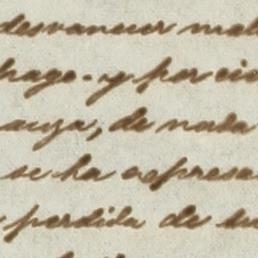 desvanecer mal
hago. y por cie
anza, de nada
se ha espresa
perdida de su